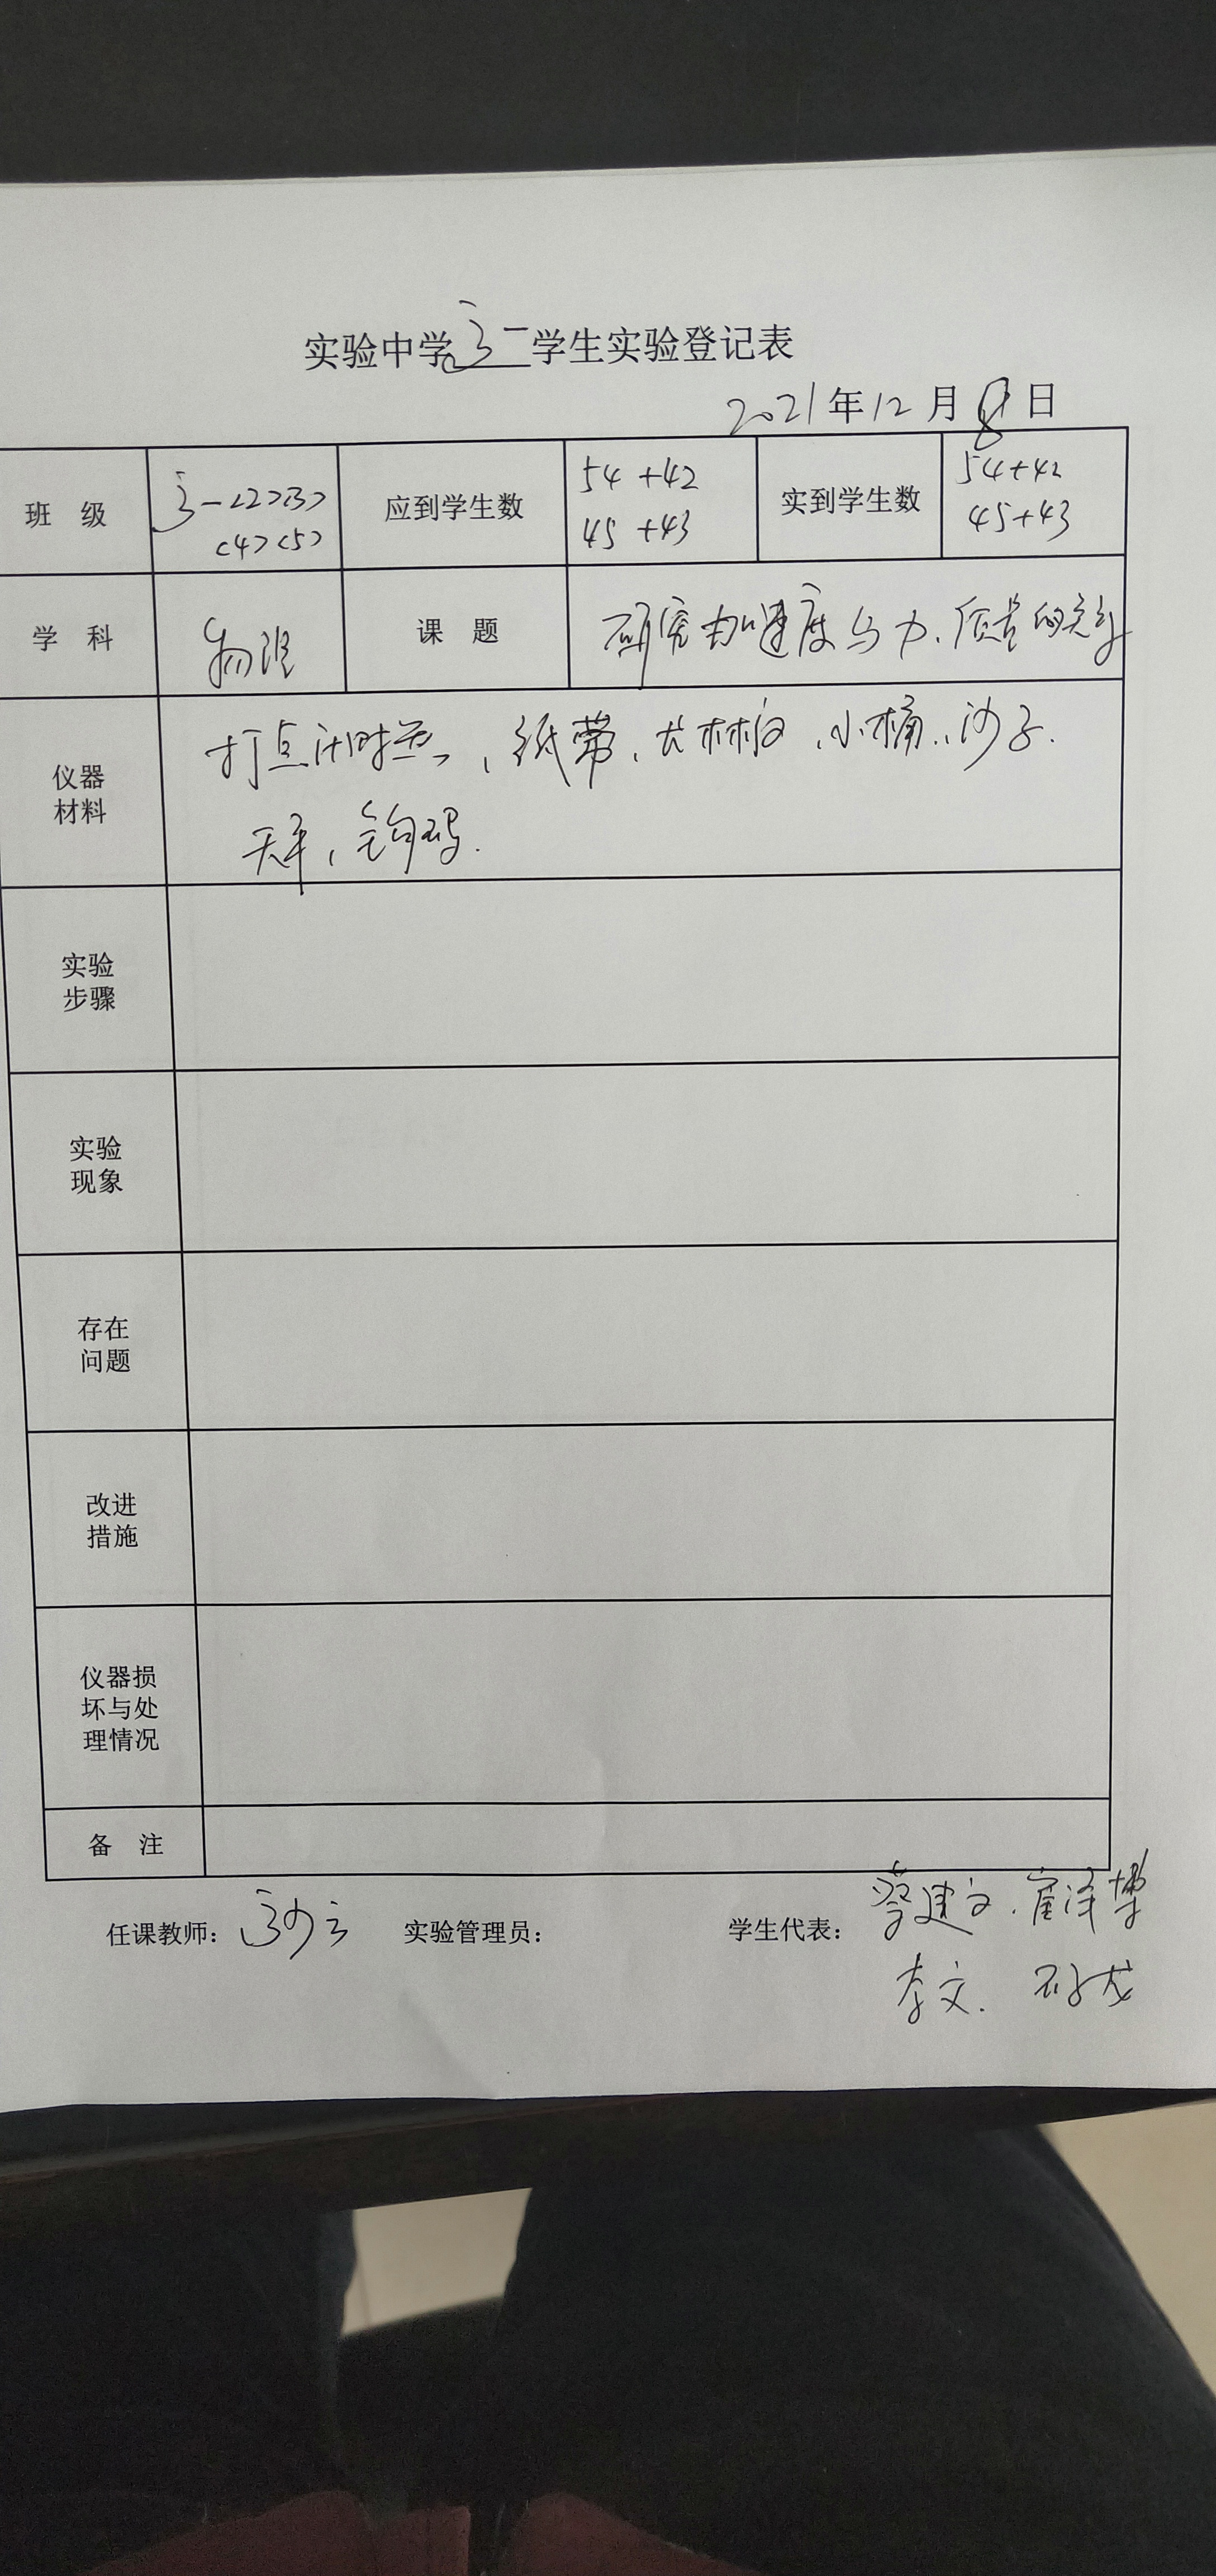 实验中学高二学生实验登记表
2021年12月8日
班 级 高一<2><3> 应到学生数 54+42 实到学生数 54+42
<4><5> 45+43 45+43
学 科 物理 课 题 研究加速度与力、质量的关系
仪器 打点计时器、纸带、长木板、小桶、沙子.
材料 天平、钩码.
实验
步骤
实验
现象
存在
问题
改进
措施
仪器损
坏与处
理情况
备 注
任课教师: 实验管理员: 学生代表: 蔡建文.崔泽博
李文. 石子龙